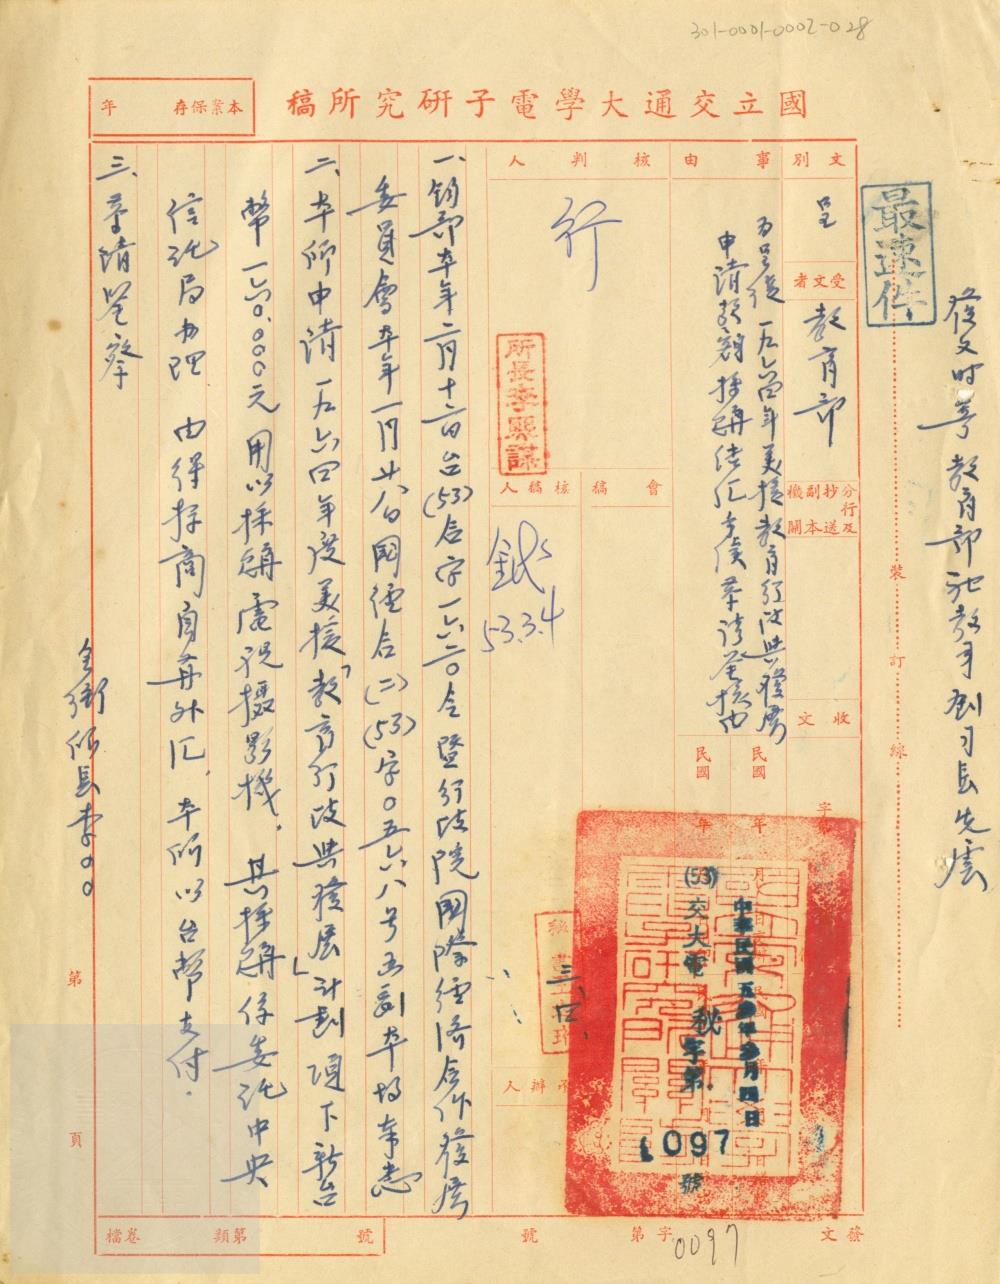 301-0001-0002-028
國立交通大學電子研究所稿
本案保存 年
最速件
發文時寄教育部
裝
訂
線
文別
呈
受文者
教育部
分行及抄送副本機關
收文
字
事由
為呈復一九六四年美援教育行政與發展
申請款額採購結匯
民國 年
民國 年
核判人
行
所長李熙謀
會稿
核稿人
53.3.4
承辦人
中華民國五拾叁年叁月四日
(53)交大電秘字第1097號
一、鈞部本年二月十六日台(53)合字一六二〇令暨行政院國際經濟合作發展
委員會本年一月廿八日國經合(二)(53)字〇五六八号函副本均奉悉
二、本所申請一九六四年度美援「教育行政與發展」計劃項下新台
幣一六〇.〇〇〇元用以採購電視攝影機.其採購係委託中央
信託局办理 由得標商自備外汇,本所以台幣支付.
三、恭請鑒察
全銜所長李〇〇
第
頁
發文
字第 0097 號
檔卷 第類 號